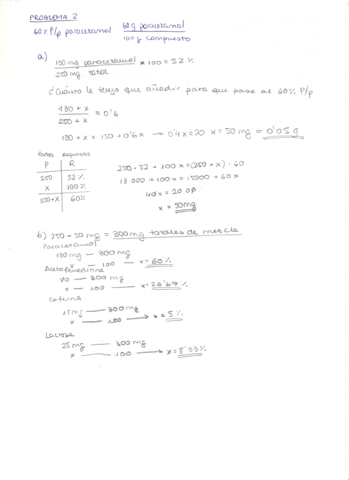 PROBLEMA 2
60% P/p paracetamol 60g paracetamol
100g compuesto
a)
130 mg paracetamol × 100 = 52%
250 mg total
¿Cuánto le tengo que añadir para que pase al 60% P/p
130 + x = 0'6
250 + x
130 + x = 150 + 0'6x → 0'4x = 20 x = 50 mg = 0'05 g
Partes Riquezas
P R
250 52%
x 100%
250+x 60%
250 · 52 + 100x = (250 + x) · 60
13.000 + 100x = 15000 + 60x
40x = 2000
x = 50mg
b) 250 + 50 mg = 300 mg totales de mezcla
Paracetamol
180 mg — 300 mg
x — 100 — x = 60%
— 300 mg
x — 100 — x = 26'67%
Cafeína
15 mg — 300 mg
x — 100 → x = 5%
Lactosa
25 mg — 300 mg
x — 100 → x = 8'33%